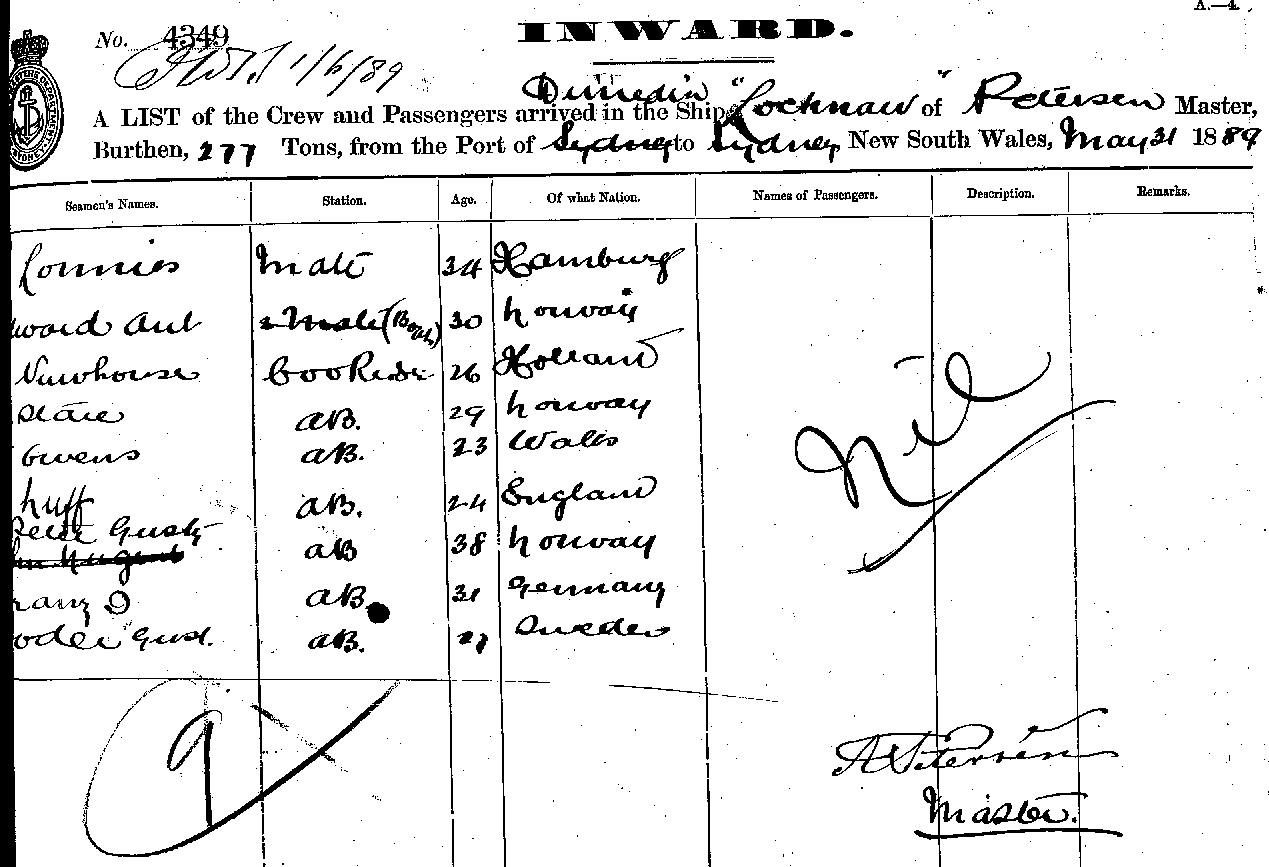 A.—4.
INWARD.
No. 4349
1/6/89
Dunedin
A LIST of the Crew and Passengers arrived in the Ship "Locknaw" of Petersen Master,
Burthen, 277 Tons, from the Port of Sydney to Sydney, New South Wales, May 31 1889
Seamen's Names. Station. Age. Of what Nation. Names of Passengers. Description. Remarks.
Lonnies Mate 34 Hamburg
ward Aut 2 Mate (Boat) 30 Norway
Newhouse Cook 26 Holland
AB. 29 Norway
Owens AB. 23 Wales
Nuff AB. 24 England
Gust
Nugent AB 38 Norway
ranz D AB. 31 Germany
Gust. AB. 27 Sweden
Nil
9
A Petersen
Master.